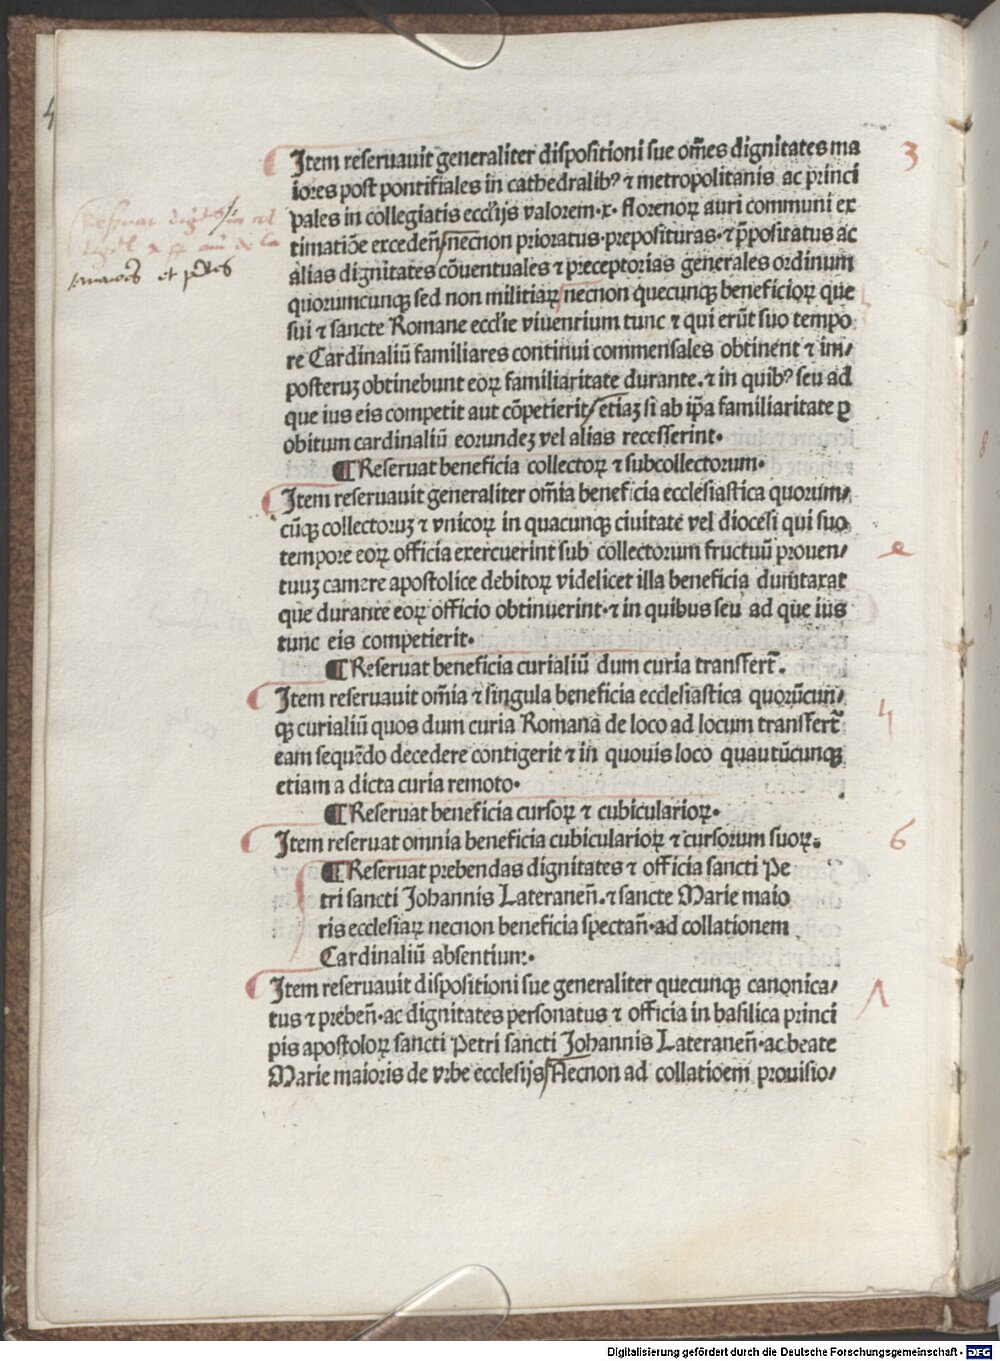 Item reseruauit generaliter dispositioni sue om̄es dignitates ma
iores post pontifiales in cathedralibꝰ ⁊ metropolitanis ac princi
pales in collegiatis eccl'ijs valorem·x· florenoꝝ auri communi ex
timatiōe exceden̄/necnon prioratus·preposituras·⁊ p̄positatus ac
alias dignitates cōuentuales ⁊ preceptorias generales ordinum
quorumcunqꝫ sed non militiaꝝ necnon quecunqꝫ beneficioꝝ que
sui ⁊ sancte Romane eccl'ie viuentium tunc ⁊ qui erūt suo tempo
re Cardinaliū familiares continui commensales obtinent ⁊ im/
posteruꝫ obtinebunt eoꝝ familiaritate durante.⁊ in quibꝰ seu ad
que ius eis competit aut cōpetierit/etiaꝫ si ab ip̄a familiaritate ꝑ
obitum cardinaliū eorundeꝫ vel alias recesserint·
¶ Reseruat beneficia collectoꝝ ⁊ subcollectorum·
Item reseruauit generaliter om̄ia beneficia ecclesiastica quorum/
cūqꝫ collectoruꝫ ⁊ vnicoꝝ in quacunqꝫ ciuitate vel diocesi qui suo
tempore eoꝝ officia exercuerint sub collectorum fructuū prouen/
tuuꝫ camere apostolice debitoꝝ videlicet illa beneficia dumtaxat
que durante eoꝝ officio obtinuerint·⁊ in quibus seu ad que ius
tunc eis competierit·
¶ Reseruat beneficia curialiū dum curia transfert̄.
Item reseruauit om̄ia ⁊ singula beneficia ecclesiastica quorūcun/
qꝫ curialiū quos dum curia Romana de loco ad locum transfert̄
eam sequēdo decedere contigerit ⁊ in quouis loco quautūcunqꝫ
etiam a dicta curia remoto·
¶ Reseruat beneficia cursoꝝ ⁊ cubicularioꝝ·
Item reseruat omnia beneficia cubicularioꝝ ⁊ cursorum suoꝝ.
¶ Reseruat prebendas dignitates ⁊ officia sancti Pe
tri sancti Johannis Lateranen̄.⁊ sancte Marie maio
ris ecclesiaꝝ necnon beneficia spectan̄·ad collationem
Cardinaliū absentium·
Item reseruauit dispositioni sue generaliter quecunqꝫ canonica/
tus ⁊ preben̄·ac dignitates personatus ⁊ officia in basilica princi
pis apostoloꝝ sancti Petri sancti Johannis Lateranen̄·ac beate
Marie maioris de vrbe ecclesijs/Necnon ad collatioem prouisio/
3
e
4
6
Λ
Digitalisierung gefördert durch die Deutsche Forschungsgemeinschaft - DFG